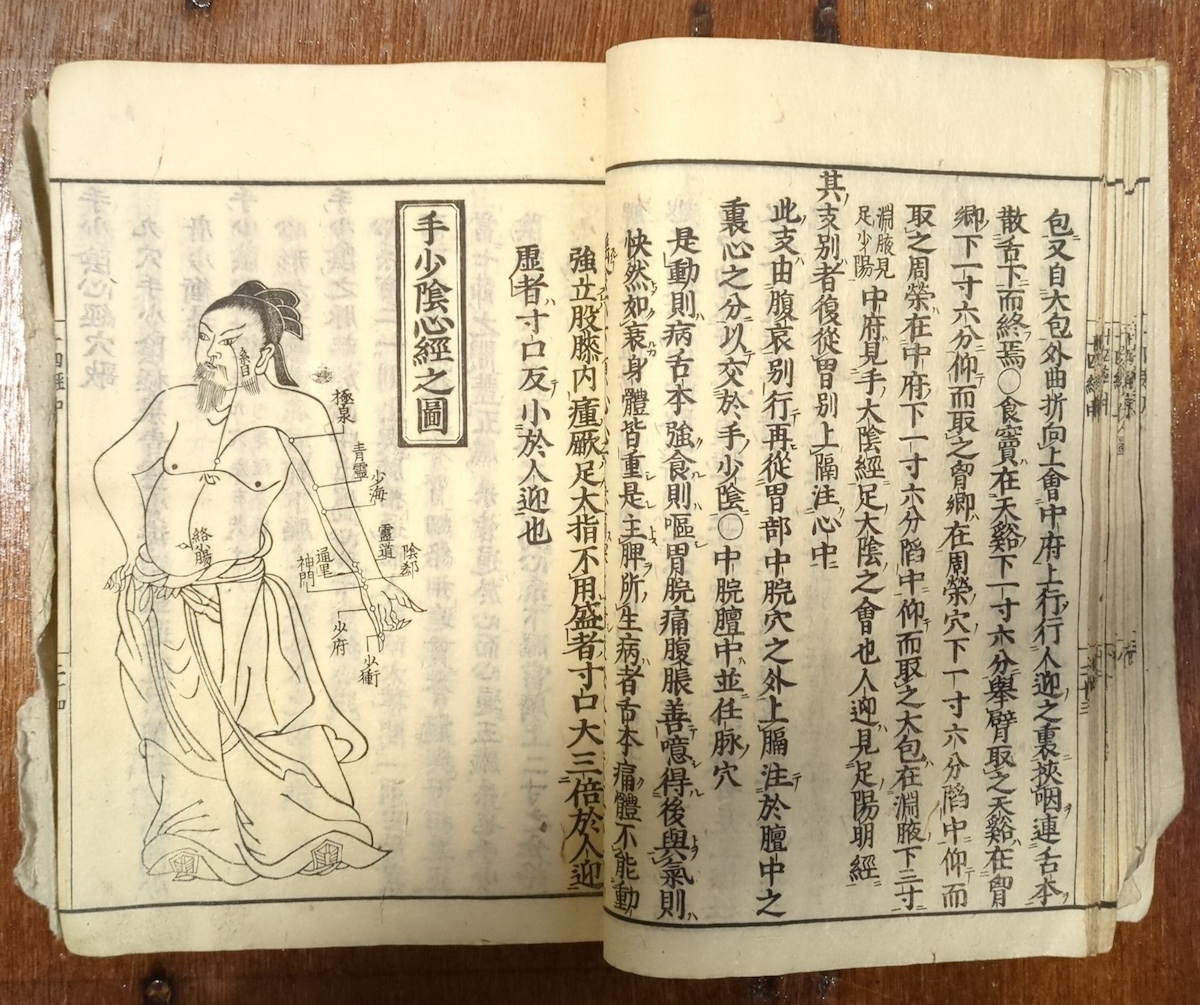 包又自大包外曲折向上會中府上行行人迎之裏挾咽連舌本
散舌下而終焉○食竇在天谿下一寸六分舉臂取之天谿在胷
鄉下一寸六分仰而取之胷鄉在周榮穴下一寸六分陷中仰而
取之周榮在中府下一寸六分陷中仰而取之大包在淵腋下三寸
淵腋見
足少陽
中府見手大陰經足大陰之會也人迎見足陽明經
其支別者復從胃別上膈注心中
此支由腹哀別行再從胃部中脘穴之外上膈注於膻中之
裏心之分以交於手少陰○中脘膻中並任脉穴
是動則病舌本強食則嘔胃脘痛腹脹善噫得後與氣則
快然如衰身體皆重是主脾所生病者舌本痛體不能動
強立股膝內瘇厥足太指不用盛者寸口大三倍於人迎
虛者寸口反小於人迎也
手少陰心經之圖
極泉
青靈
少海
靈道
通里
陰郄
神門
少府
少衝
絡小腸